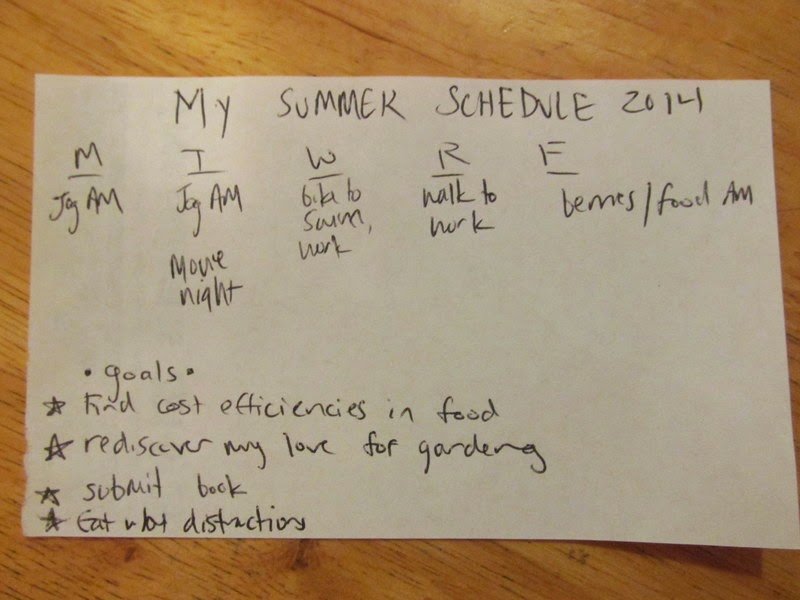 My SUMMER SCHEDULE 2014
M T W R F
Jog AM Jog AM bike to walk to berries/food AM
swim, work
work
Movie
night
• goals •
☆ Find cost efficiencies in food
☆ rediscover my love for gardening
☆ submit book
☆ Eat w/out distractions